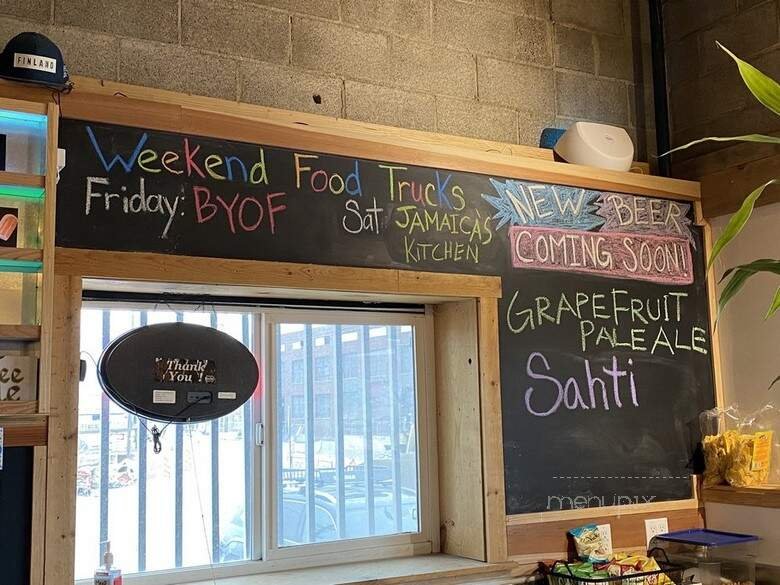 FINLAND
Weekend Food Trucks
Friday: BYOF
Sat JAMAICA'S
KITCHEN
NEW BEER
COMING SOON!
GRAPEFRUIT
PALE ALE
Sahti
Thank
You!
menupix